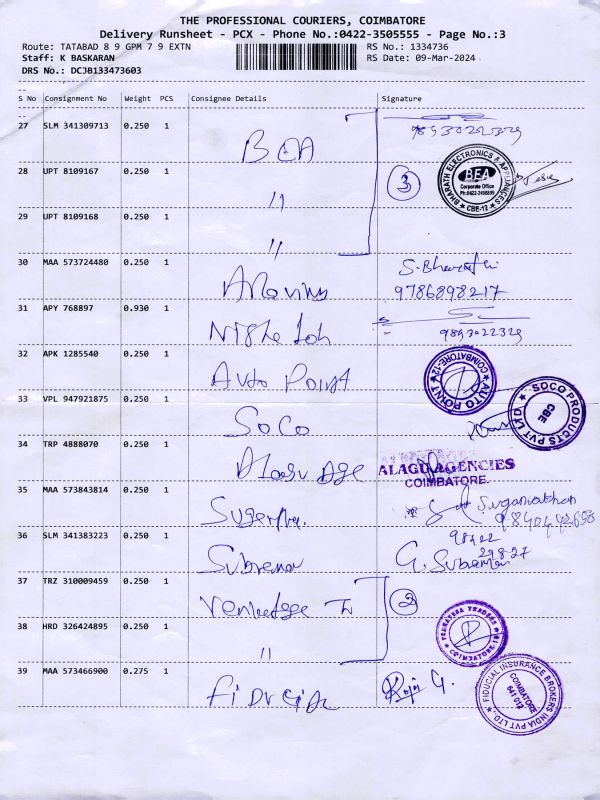 THE PROFESSIONAL COURIERS, COIMBATORE
Delivery Runsheet - PCX - Phone No.:0422-3505555 - Page No.:3
Route: TATABAD 8 9 GPM 7 9 EXTN
RS No.: 1334736
Staff: K BASKARAN
RS Date: 09-Mar-2024
DRS No.: DCJB133473603
S No Consignment No Weight PCS Consignee Details Signature
27 SLM 341309713 0.250 1 BEA 9893022329
28 UPT 8109167 0.250 1 " 3
BHARATH ELECTRONICS & APPLIANCES
BEA
Corporate Office
CBE-12
29 UPT 8109168 0.250 1 "
30 MAA 573724480 0.250 1 S. Bharathi
9786898217
31 APY 768897 0.930 1
9893022329
32 APK 1285540 0.250 1 Auto Point
AUTO POINT COIMBATORE-12
33 VPL 947921875 0.250 1 SOCO
SOCO PRODUCTS PVT LTD
CBE
34 TRP 4888070 0.250 1 Alagu Age
ALAGU AGENCIES
COIMBATORE.
35 MAA 573843814 0.250 1
36 SLM 341383223 0.250 1 98422
29827
G.
37 TRZ 310009459 0.250 1 2
38 HRD 326424895 0.250 1 "
TRADERS
39 MAA 573466900 0.275 1
FIDUCIAL INSURANCE BROKERS INDIA PVT LTD.,
COIMBATORE
641 012